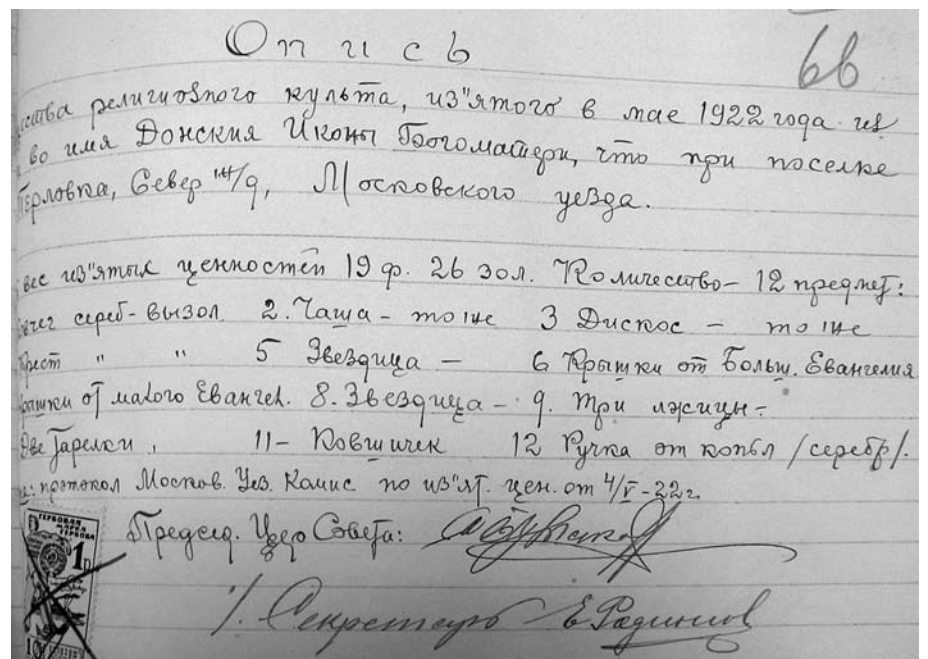 Опись
66
ества религиозного культа, из"ятого в мае 1922 года из
во имя Донския Иконы Богоматери, что при поселке
Перловка, Север ж/д, Московского уезда.
вес из"ятых ценностей 19 ф. 26 зол. Количество - 12 предмет:
сереб-вызол. 2. Чаша - тоже 3 Дискос - тоже
Крест " " 5 Звездица - 6 Крышки от Больш. Евангелия
рышки от малого Евангел. 8. Звездица - 9. Три лжицы -
Две Тарелки, 11- Ковшичек 12 Ручка от копья /серебр/.
протокол Москов. Уез. Комис по из"ят. цен. от 4/V-22 г.
Председ. Цер Совета:
Секретарь Е Радионов
ГЕРБОВАЯ
МАРКА
1р
10